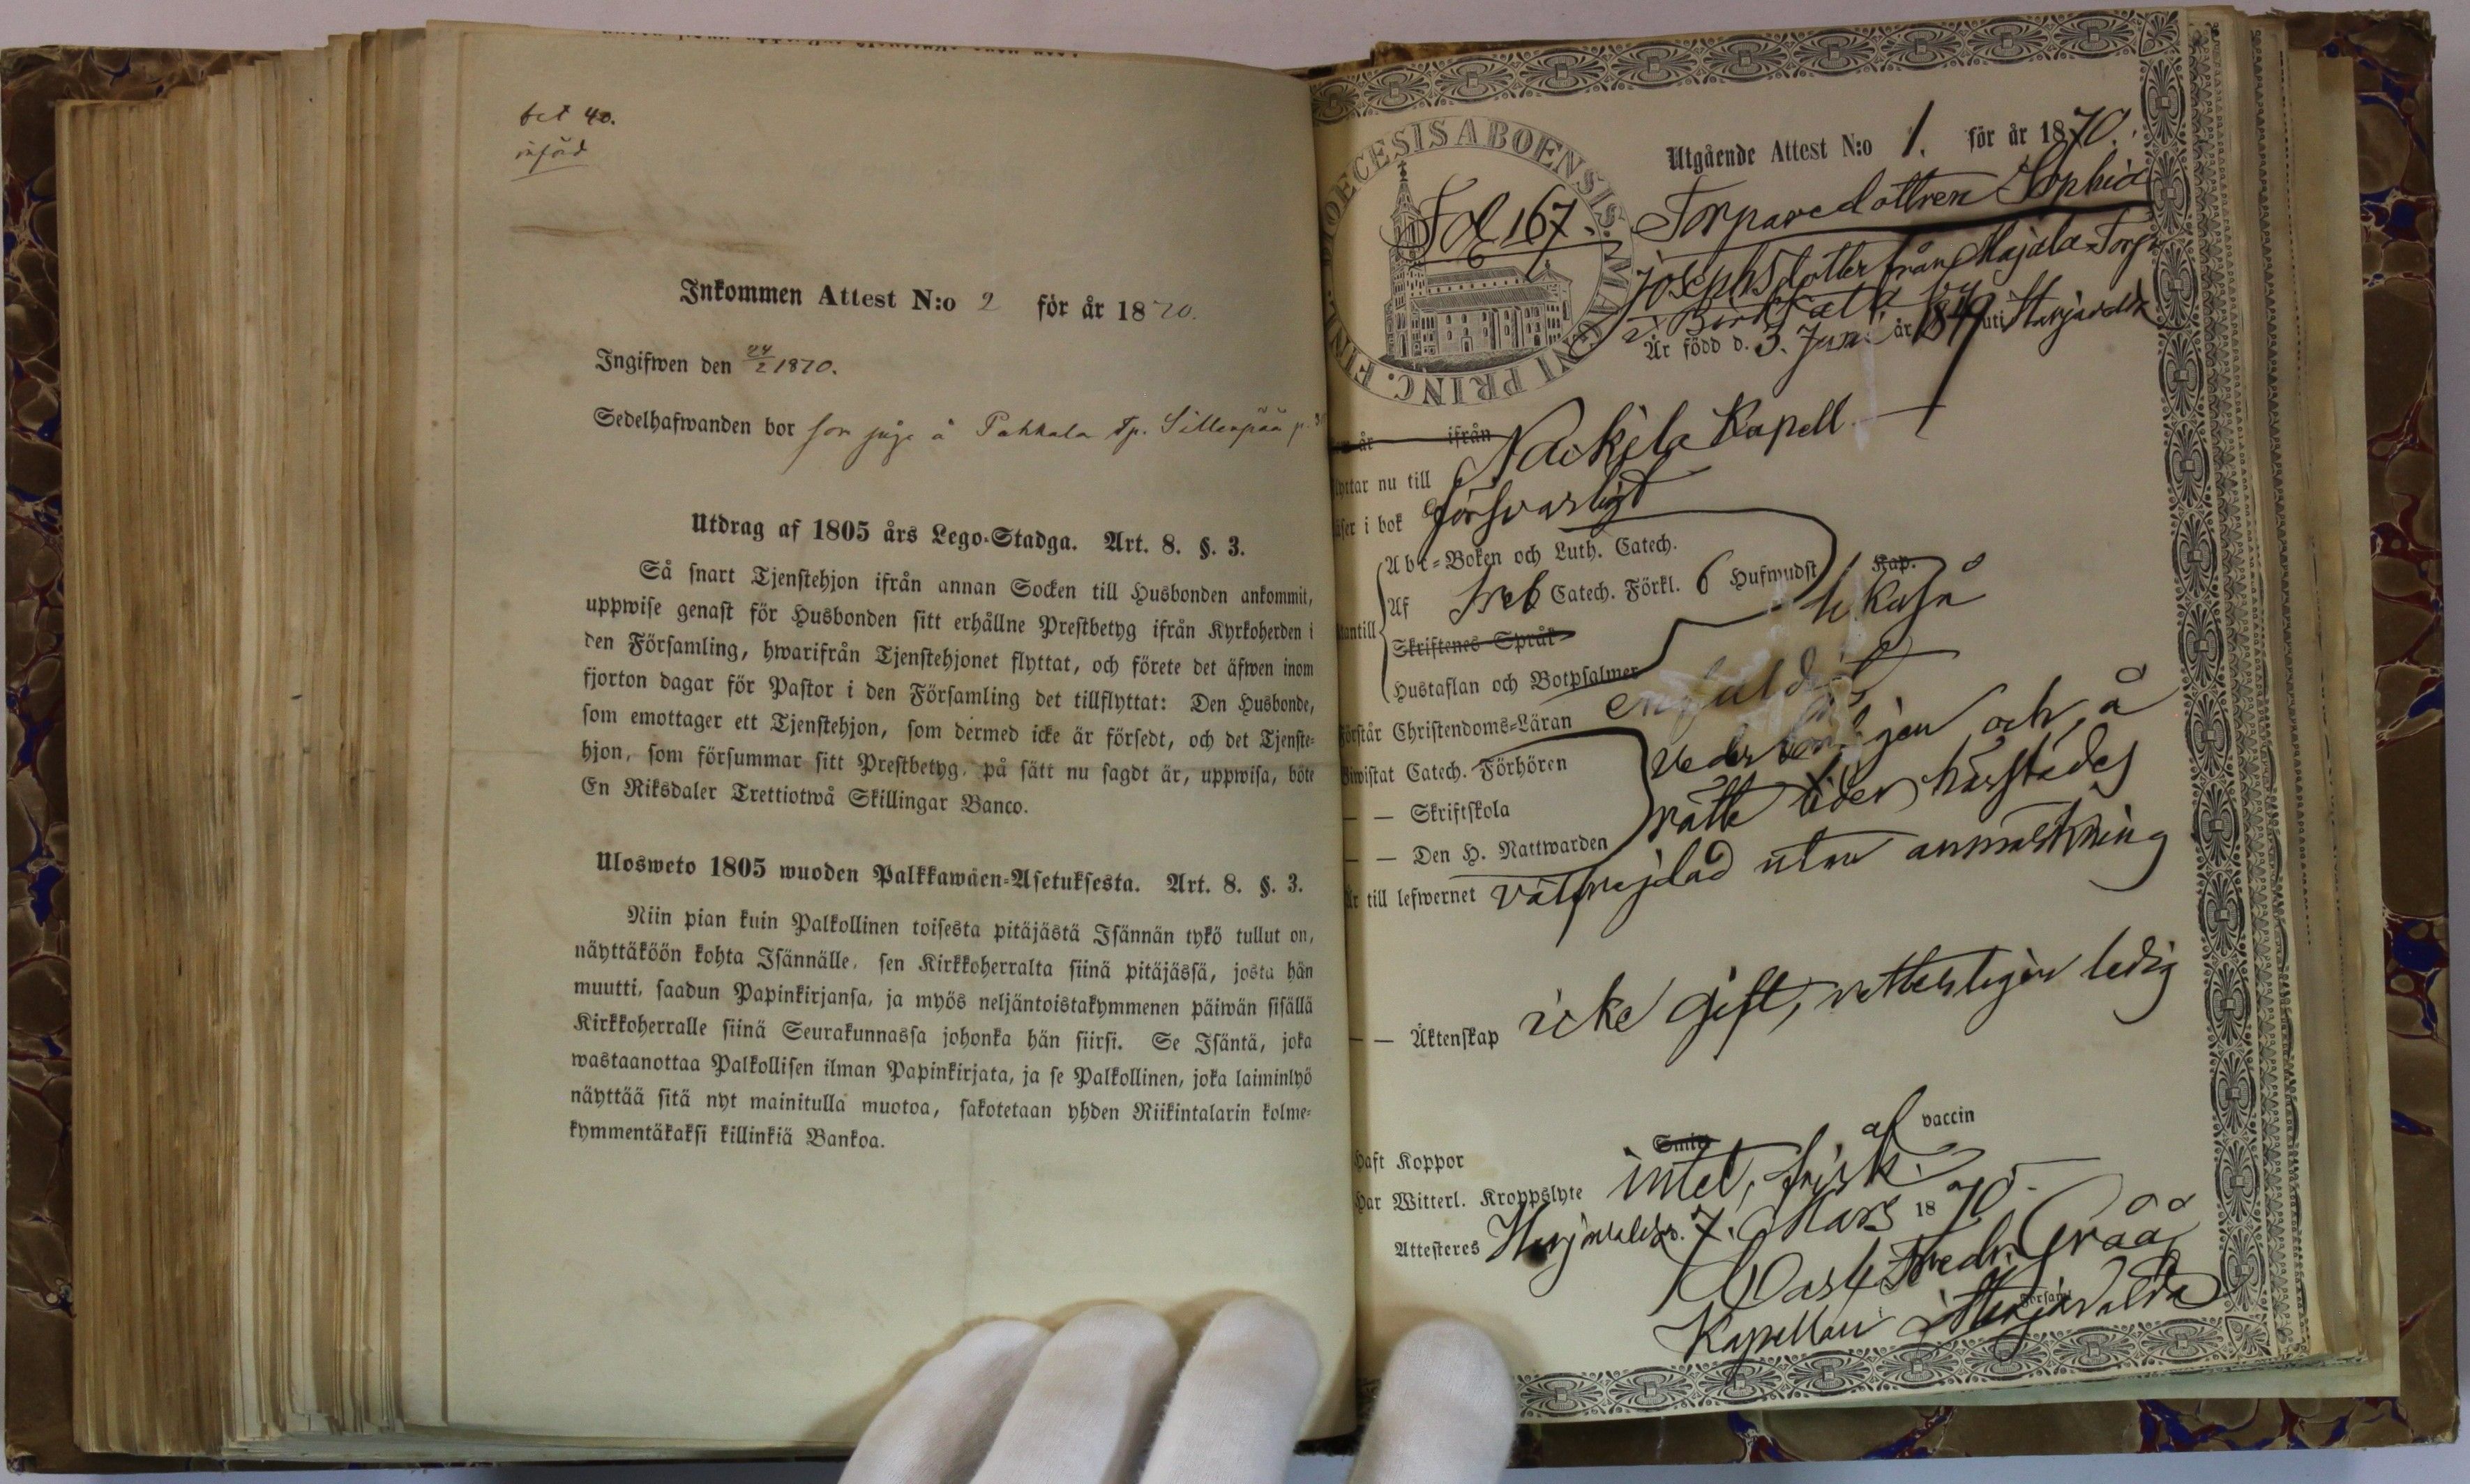 bet 40.
införd
Inkommen Attest N:o 2 för år 1870.
Ingifwen den 24/2 1870.
Sedelhafwanden bor som piga å Pakkala Tp. Sillanpää p.
Utdrag af 1805 års Lego-Stadga. Art. 8. §. 3.
Så snart Tjenstehjon ifrån annan Socken till Husbonden ankommit,
uppwise genast för Husbonden sitt erhållne Prestbetyg ifrån Kyrkoherden i
den Församling, hwarifrån Tjenstehjonet flyttat, och förete det äfwen inom
fjorton dagar för Pastor i den Församling det tillflyttat: Den Husbonde,
som emottager ett Tjenstehjon, som dermed icke är försedt, och det Tjenste-
hjon, som försummar sitt Prestbetyg, på sätt nu sagdt är, uppwisa, böte
En Riksdaler Trettiotwå Skillingar Banco.
Ulosweto 1805 wuoden Palkkawäen-Asetuksesta. Art. 8. §. 3.
Niin pian kuin Palkollinen toisesta pitäjästä Isännän tykö tullut on,
näyttäköön kohta Isännälle, sen Kirkkoherralta siinä pitäjässä, josta hän
muutti, saadun Papinkirjansa, ja myös neljäntoistakymmenen päiwän sisällä
Kirkkoherralle siinä Seurakunnassa johonka hän siirsi. Se Isäntä, joka
wastaanottaa Palkollisen ilman Papinkirjata, ja se Palkollinen, joka laiminlyö
näyttää sitä nyt mainitulla muotoa, sakotetaan yhden Riikintalarin kolme-
kymmentäkaksi killinkiä Bankoa.
DIOECESIS ABOENSIS. MAGNI PRINC. FINL.
Fol 167.
Utgående Attest N:o 1. för år 1870.
Torparedottren Sophia
Josephsdotter från Majala Torp
Är född d. 3. Juni år 1849 uti Harjavalda
år ifrån
flyttar nu till Nackila Kapell
läser i bok försvarligt
Abc-Boken och Luth. Catech.
Af Sveb Catech. Förkl. 6 Hufwudst Kap.
likaså
Utantill
Skriftenes Språk
Hustaflan och Botpsalmer
Förstår Christendoms-Läran enfaldigt
Biwistat Catech. Förhören vederbörligen och å
— — Skriftskola rätte tider härstädes
— — Den H. Nattwarden
Är till lefwernet välfrejdad utan anmärkning
— — Äktenskap icke gift, veterligen ledig
Haft Koppor Smitt af vaccin
Har Witterl. Kroppslyte intet, frisk.
Attesteres Harjavalda d. 7. Mars 1870.
Carl Fredr. Gråå
Kapellan i Harjavalda Församl